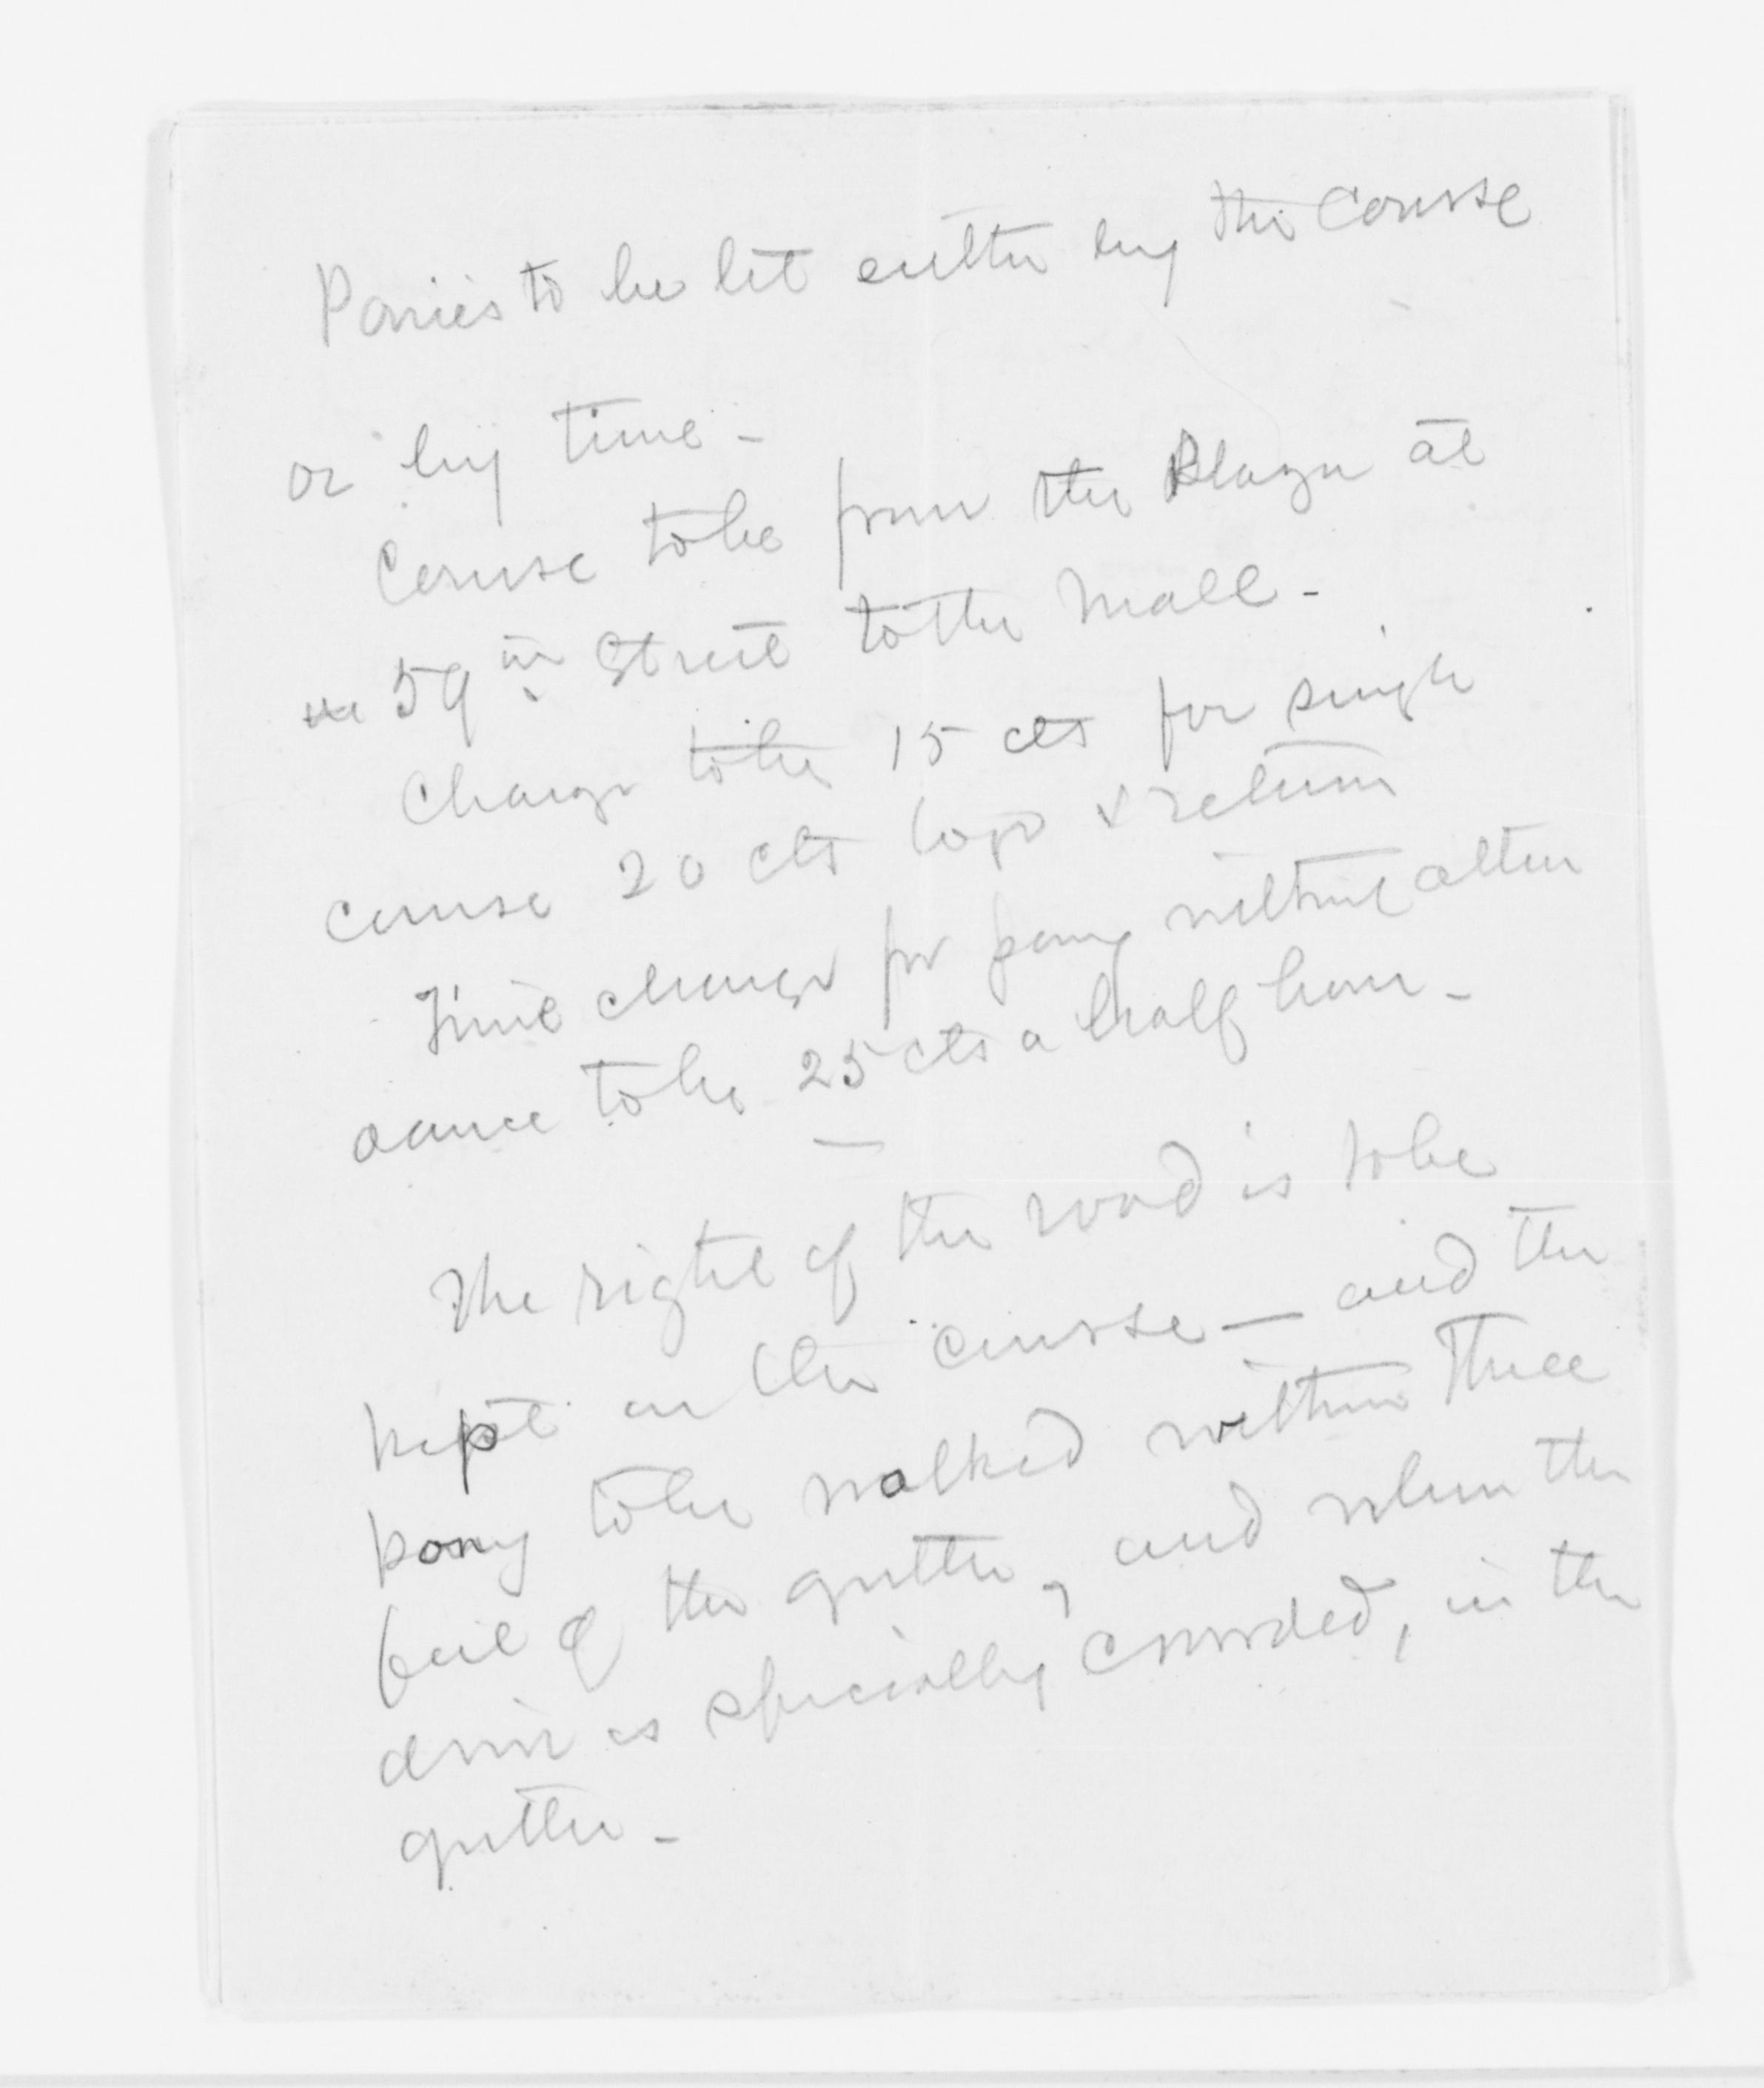 Ponies to be let either by the Course
or by time -
Course to be from the Plaza at
59th Street to the Mall -
Charge to be 15 cts for single
course 20 cts to go & return
Time charge for pony without atten
dance to be 25 cts a half hour -
—
The right of the road is to be
kept on the course — and the
pony to be walked within three
feet of the gutter, and when the
drive is specially crowded, in the
gutter -